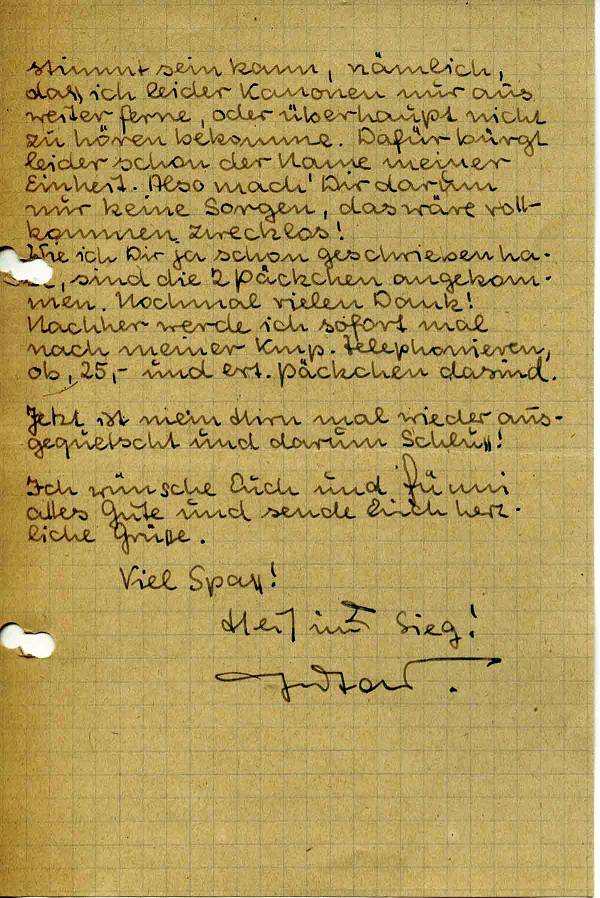 stimmt sein kann, nämlich,
dass ich leider Kanonen nur aus
weiter ferne, oder überhaupt nicht
zu hören bekomme. Dafür bürgt
leider schon der Name meiner
Einheit. Also mach' Dir darum
nur keine Sorgen, das wäre voll-
kommen zwecklos!
Wie ich Dir ja schon geschrieben ha-
, sind die 2 Päckchen angekom-
men. Nochmal vielen Dank!
Nachher werde ich sofort mal
nach meiner Kmp. telephonieren,
ob, 25,- und evt. Päckchen da sind.
Jetzt ist mein Hirn mal wieder aus-
gequetscht und darum Schluss!
Ich wünsche Euch und
alles Gute und sende Euch herz-
liche Grüße.
Viel Spass!
Heil und Sieg!